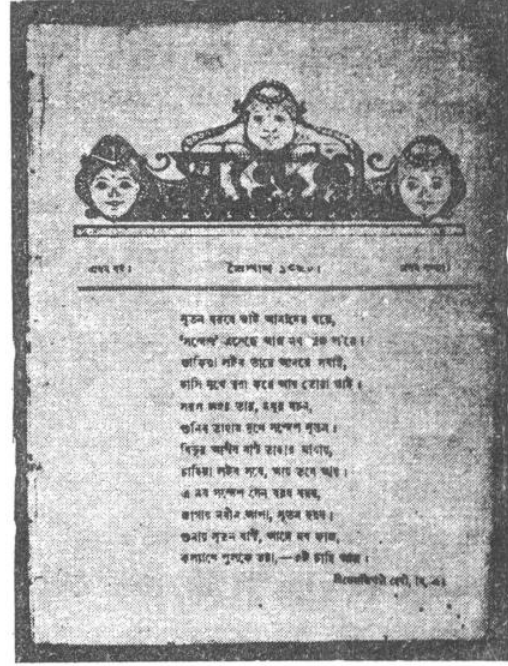 প্রথম বর্ষ। বৈশাখ ১৩২০। প্রথম সংখ্যা।
নূতন বরষে ভাই আমাদের ঘরে,
'সন্দেশ' এসেছে আজ নব সাজ প'রে।
ডাকিয়া লইব তারে আদরে সবাই,
হাসি মুখে ত্বরা করে আয় তোরা ভাই।
সরল অন্তর তার, মধুর বচন,
শুনিব তাহার মুখে সন্দেশ নূতন।
বিভুর আশীষ বাণী তাহার মাথায়,
চাহিয়া লইব সবে, আয় তবে আয়।
এ নব সন্দেশ যেন বরষ বরষ,
জাগায় নবীন আশা, নূতন হরষ।
শুনায় নূতন বাণী, আনে নব কাজ,
কল্যাণে পুলকে ভরা,—এই চাহি আজ।
দেবী, বি, এ।